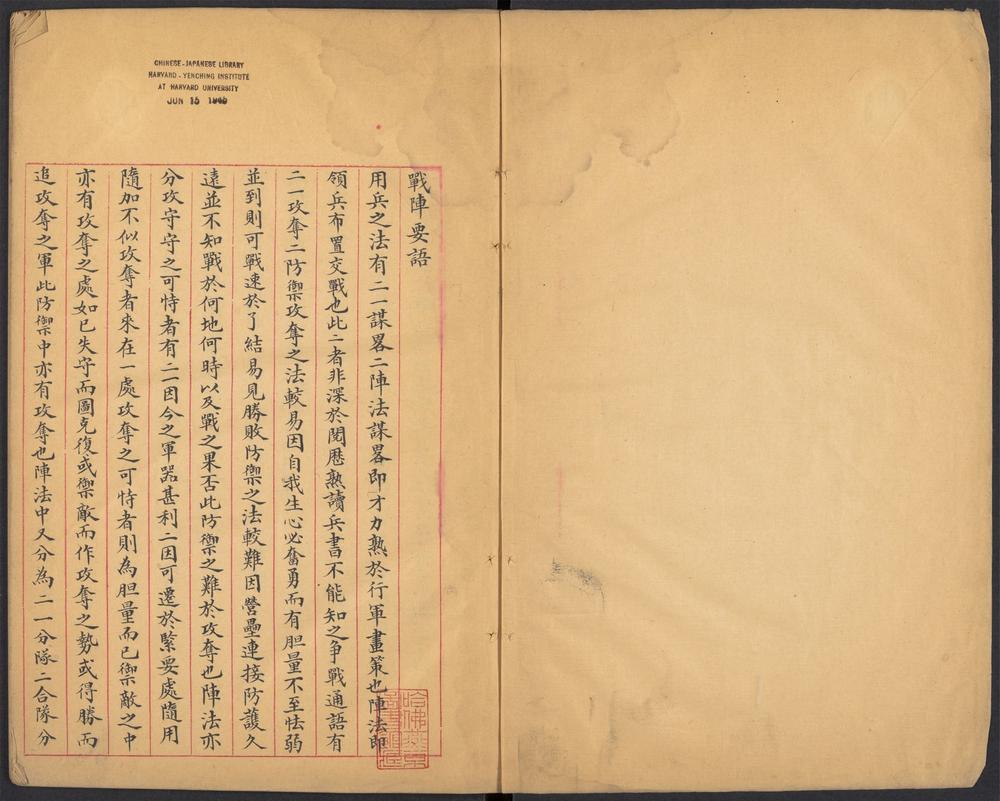 CHINESE-JAPANESE LIBRARY
HARVARD-YENCHING INSTITUTE
AT HARVARD UNIVERSITY
JUN 15 1940
戰陣要語
用兵之法有二一謀畧二陣法謀畧即才力熟於行軍畫策也陣法即
領兵布置交戰也此二者非深於閱歷熟讀兵書不能知之爭戰通語有
二一攻奪二防禦攻奪之法較易因自我生心必奮勇而有胆量不至怯弱
並到則可戰速於了結易見勝敗防禦之法較難因營壘連接防護久
遠並不知戰於何地何時以及戰之果否此防禦之難於攻奪也陣法亦
分攻守守之可恃者有二一因今之軍器甚利二因可遷於緊要處隨用
隨加不似攻奪者來在一處攻奪之可恃者則為胆量而已禦敵之中
亦有攻奪之處如已失守而圖克復或禦敵而作攻奪之勢或得勝而
追攻奪之軍此防禦中亦有攻奪也陣法中又分為二一分隊二合隊分